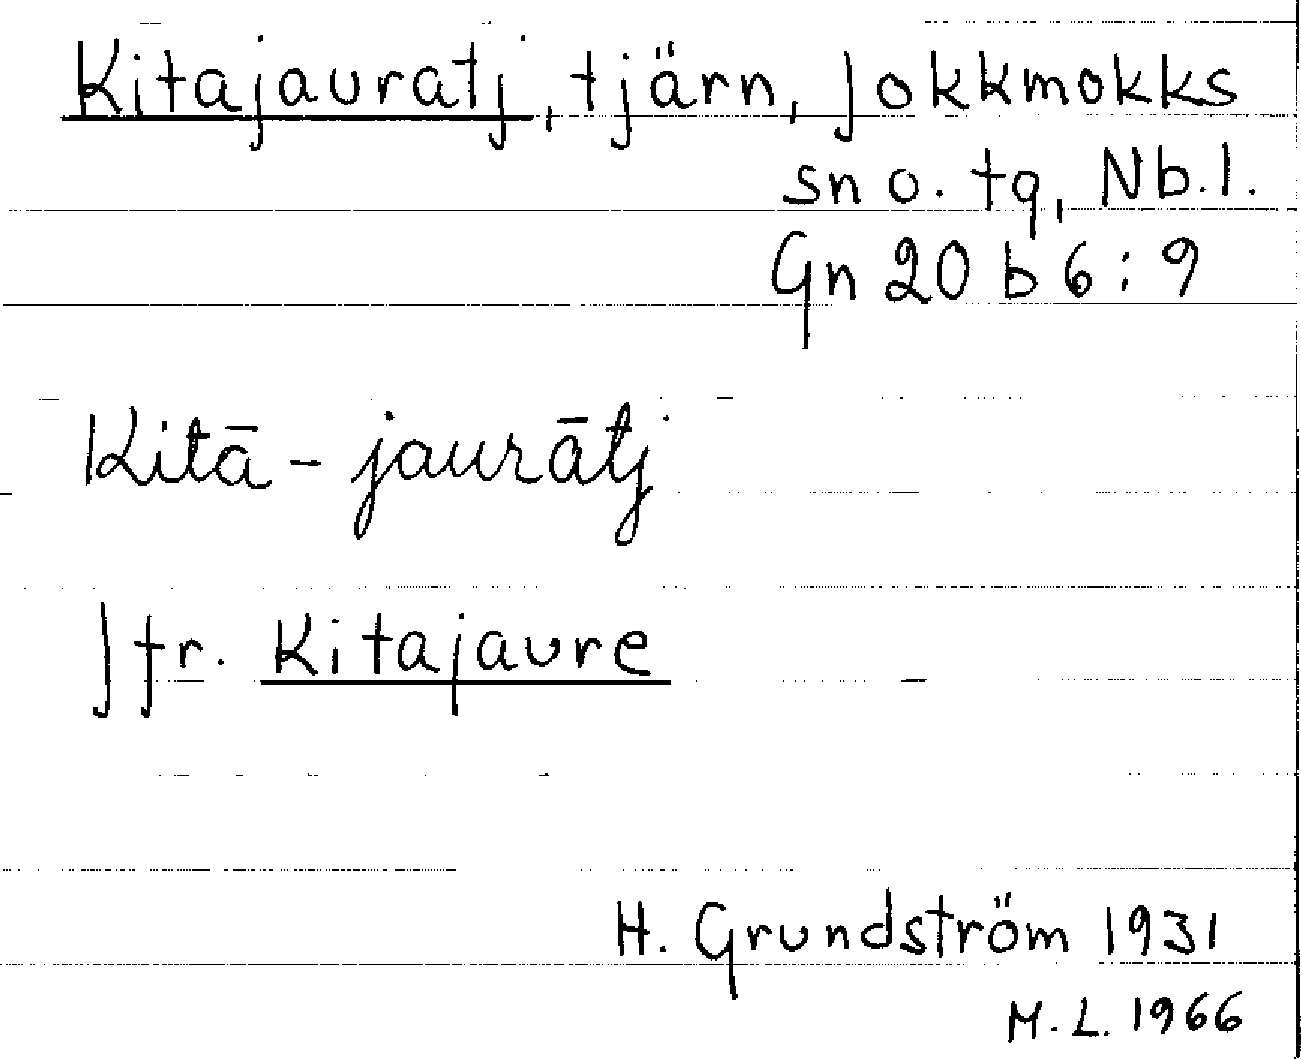 Kitajauratj, tjärn, Jokkmokks
sn o. tg, Nb.l.
Gn 20 b 6:9
Kitā-jaurātj
Jfr. Kitajaure
H. Grundström 1931
M.L. 1966